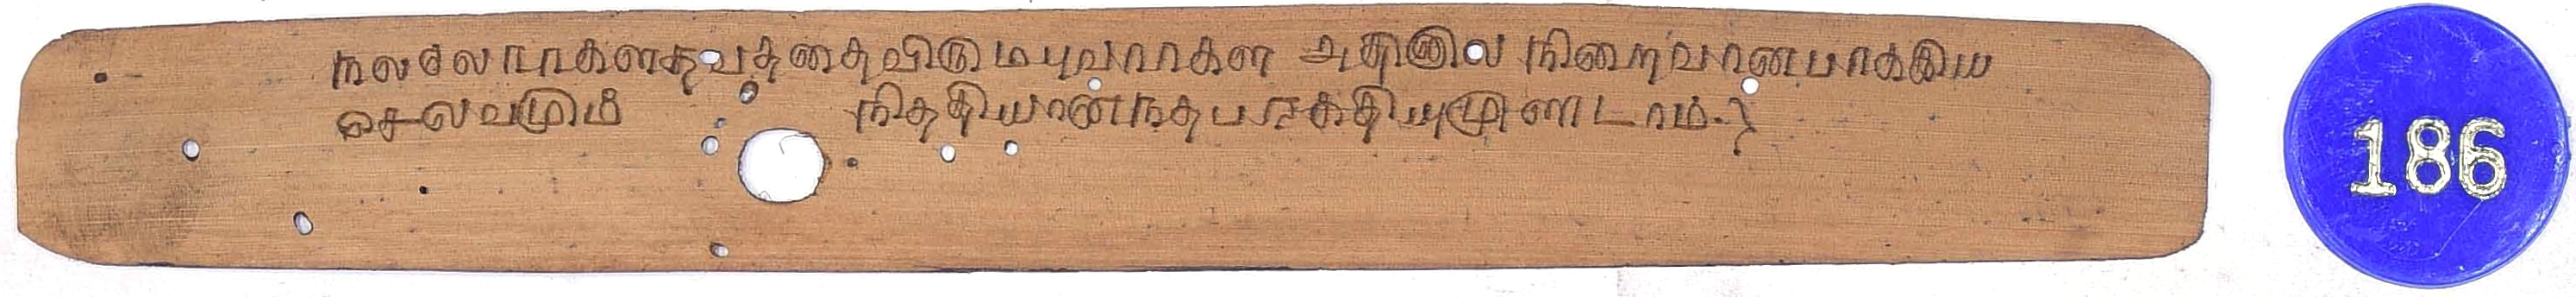 நலலோராகளதவததைவிருமபுவாராகள அதினால நிறைவானபாககிய
செலவமும நிததியானநதபராசகதியுமுணடாம்.
186